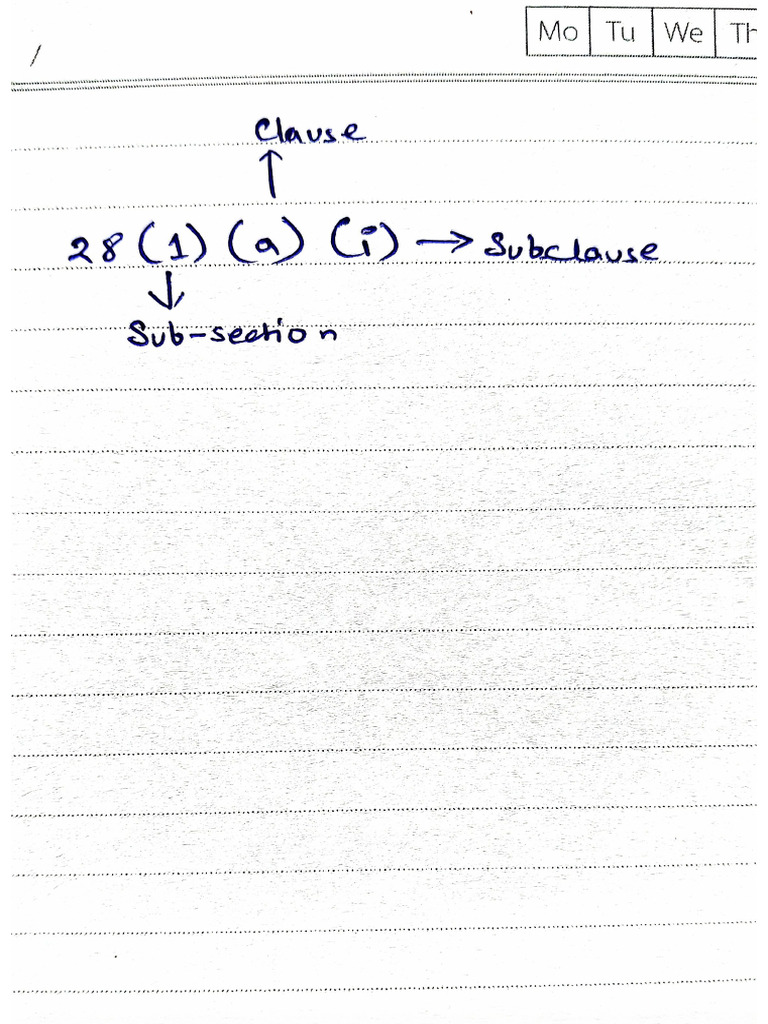 Mo Tu We Th
/
Clause
↑
28 (1) (a) (i) → Subclause
↓
Sub-section